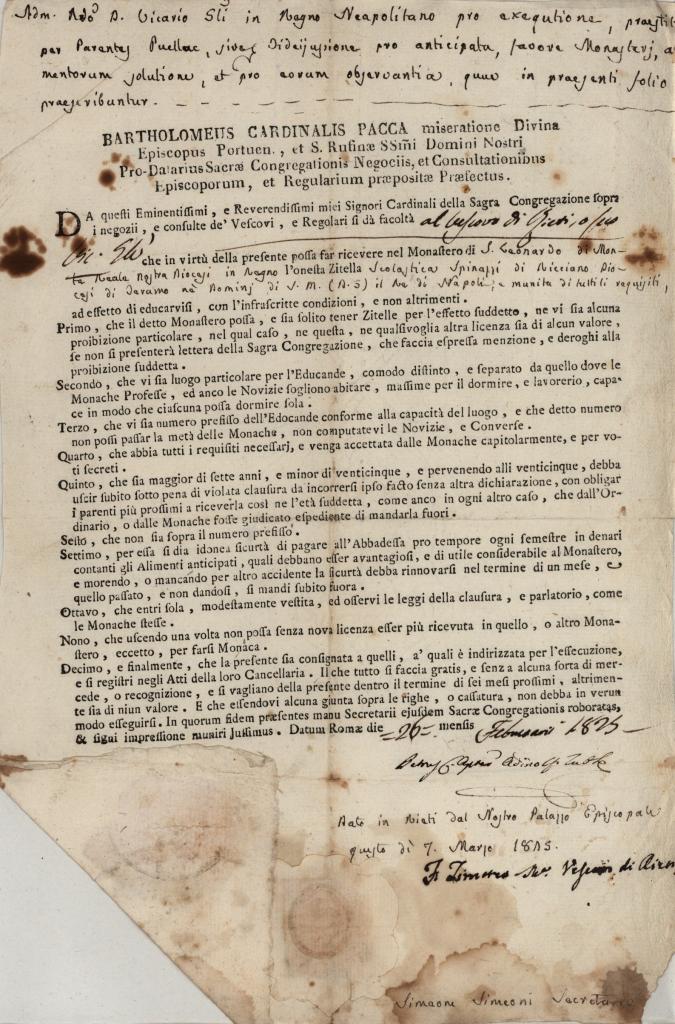 Adm. Rdo D. Vicario Gli in Regno Neapolitano pro exequtione, praestit
per Parentes Puellae, sive fideijussione pro anticipata, favore Monasterj, a
mentorum solutione, et pro eorum observantia, quae in praesenti folio
praescribuntur.
BARTHOLOMEUS CARDINALIS PACCA miseratione Divina
Episcopus Portuen., et S. Rufinæ SSmi Domini Nostri
Pro-Datarius Sacræ Congregationis Negociis, et Consultationibus
Episcoporum, et Regularium præpositæ Præfectus.
DA questi Eminentissimi, e Reverendissimi miei Signori Cardinali della Sagra Congregazione sopra
i negozii, e consulte de' Vescovi, e Regolari si dà facoltà al Vescovo di Rieti, o suo
Vic. Gle che in virtù della presente possa far ricevere nel Monastero di S. Leonardo di Mon-
te Reale Nostra Diocesi in Regno l'onesta Zitella Scolastica Spinozzi di Ricciano Dio-
cesi di Teramo ne Dominj di S. M. (D. G.) il Re di Napoli, e munita di tutti li requisiti,
ad effetto di educarvisi, con l'infrascritte condizioni, e non altrimenti.
Primo, che il detto Monastero possa, e sia solito tener Zitelle per l'effetto suddetto, ne vi sia alcuna
proibizione particolare, nel qual caso, ne questa, ne qualsivoglia altra licenza sia di alcun valore,
se non si presenterà lettera della Sagra Congregazione, che faccia espressa menzione, e deroghi alla
proibizione suddetta.
Secondo, che vi sia luogo particolare per l'Educande, comodo distinto, e separato da quello dove le
Monache Professe, ed anco le Novizie sogliono abitare, massime per il dormire, e lavorerio, capa-
ce in modo che ciascuna possa dormire sola.
Terzo, che vi sia numero prefisso dell'Edocande conforme alla capacità del luogo, e che detto numero
non possi passar la metà delle Monache, non computatevi le Novizie, e Converse.
Quarto, che abbia tutti i requisiti necessarj, e venga accettata dalle Monache capitolarmente, e per vo-
ti secreti.
Quinto, che sia maggior di sette anni, e minor di venticinque, e pervenendo alli venticinque, debba
uscir subito sotto pena di violata clausura da incorrersi ipso facto senza altra dichiarazione, con obligar
i parenti più prossimi a riceverla così ne l'età suddetta, come anco in ogni altro caso, che dall'Or-
dinario, o dalle Monache fosse giudicato espediente di mandarla fuori.
Sesto, che non sia sopra il numero prefisso.
Settimo, per essa si dia idonea sicurtà di pagare all'Abbadessa pro tempore ogni semestre in denari
contanti gli Alimenti anticipati, quali debbano esser avantagiosi, e di utile considerabile al Monastero,
e morendo, o mancando per altro accidente la sicurtà debba rinnovarsi nel termine di un mese, e
quello passato, e non dandosi, si mandi subito fuora.
Ottavo, che entri sola, modestamente vestita, ed osservi le leggi della clausura, e parlatorio, come
le Monache stesse.
Nono, che uscendo una volta non possa senza nova licenza esser più ricevuta in quello, o altro Mona-
stero, eccetto, per farsi Monaca.
Decimo, e finalmente, che la presente sia consignata a quelli, a' quali è indirizzata per l'essecuzione,
e si registri negli Atti della loro Cancellaria. Il che tutto si faccia gratis, e senza alcuna sorta di mer-
cede, o recognizione, e si vagliano della presente dentro il termine di sei mesi prossimi, altrimen-
te sia di niun valore. E che essendovi alcuna giunta sopra le righe, o cassatura, non debba in verun
modo esseguirsi. In quorum fidem præsentes manu Secretarii ejusdem Sacræ Congregationis roboratas,
& sigui impressione muniri Jussimus. Datum Romæ die 26 mensis Februarii 1825
Dato in Rieti dal Nostro Palazzo Episcopale
questo dì 7. Marzo 1825.
F. Timoteo Vescovo di Rieti
Simeone Simeoni Secretario